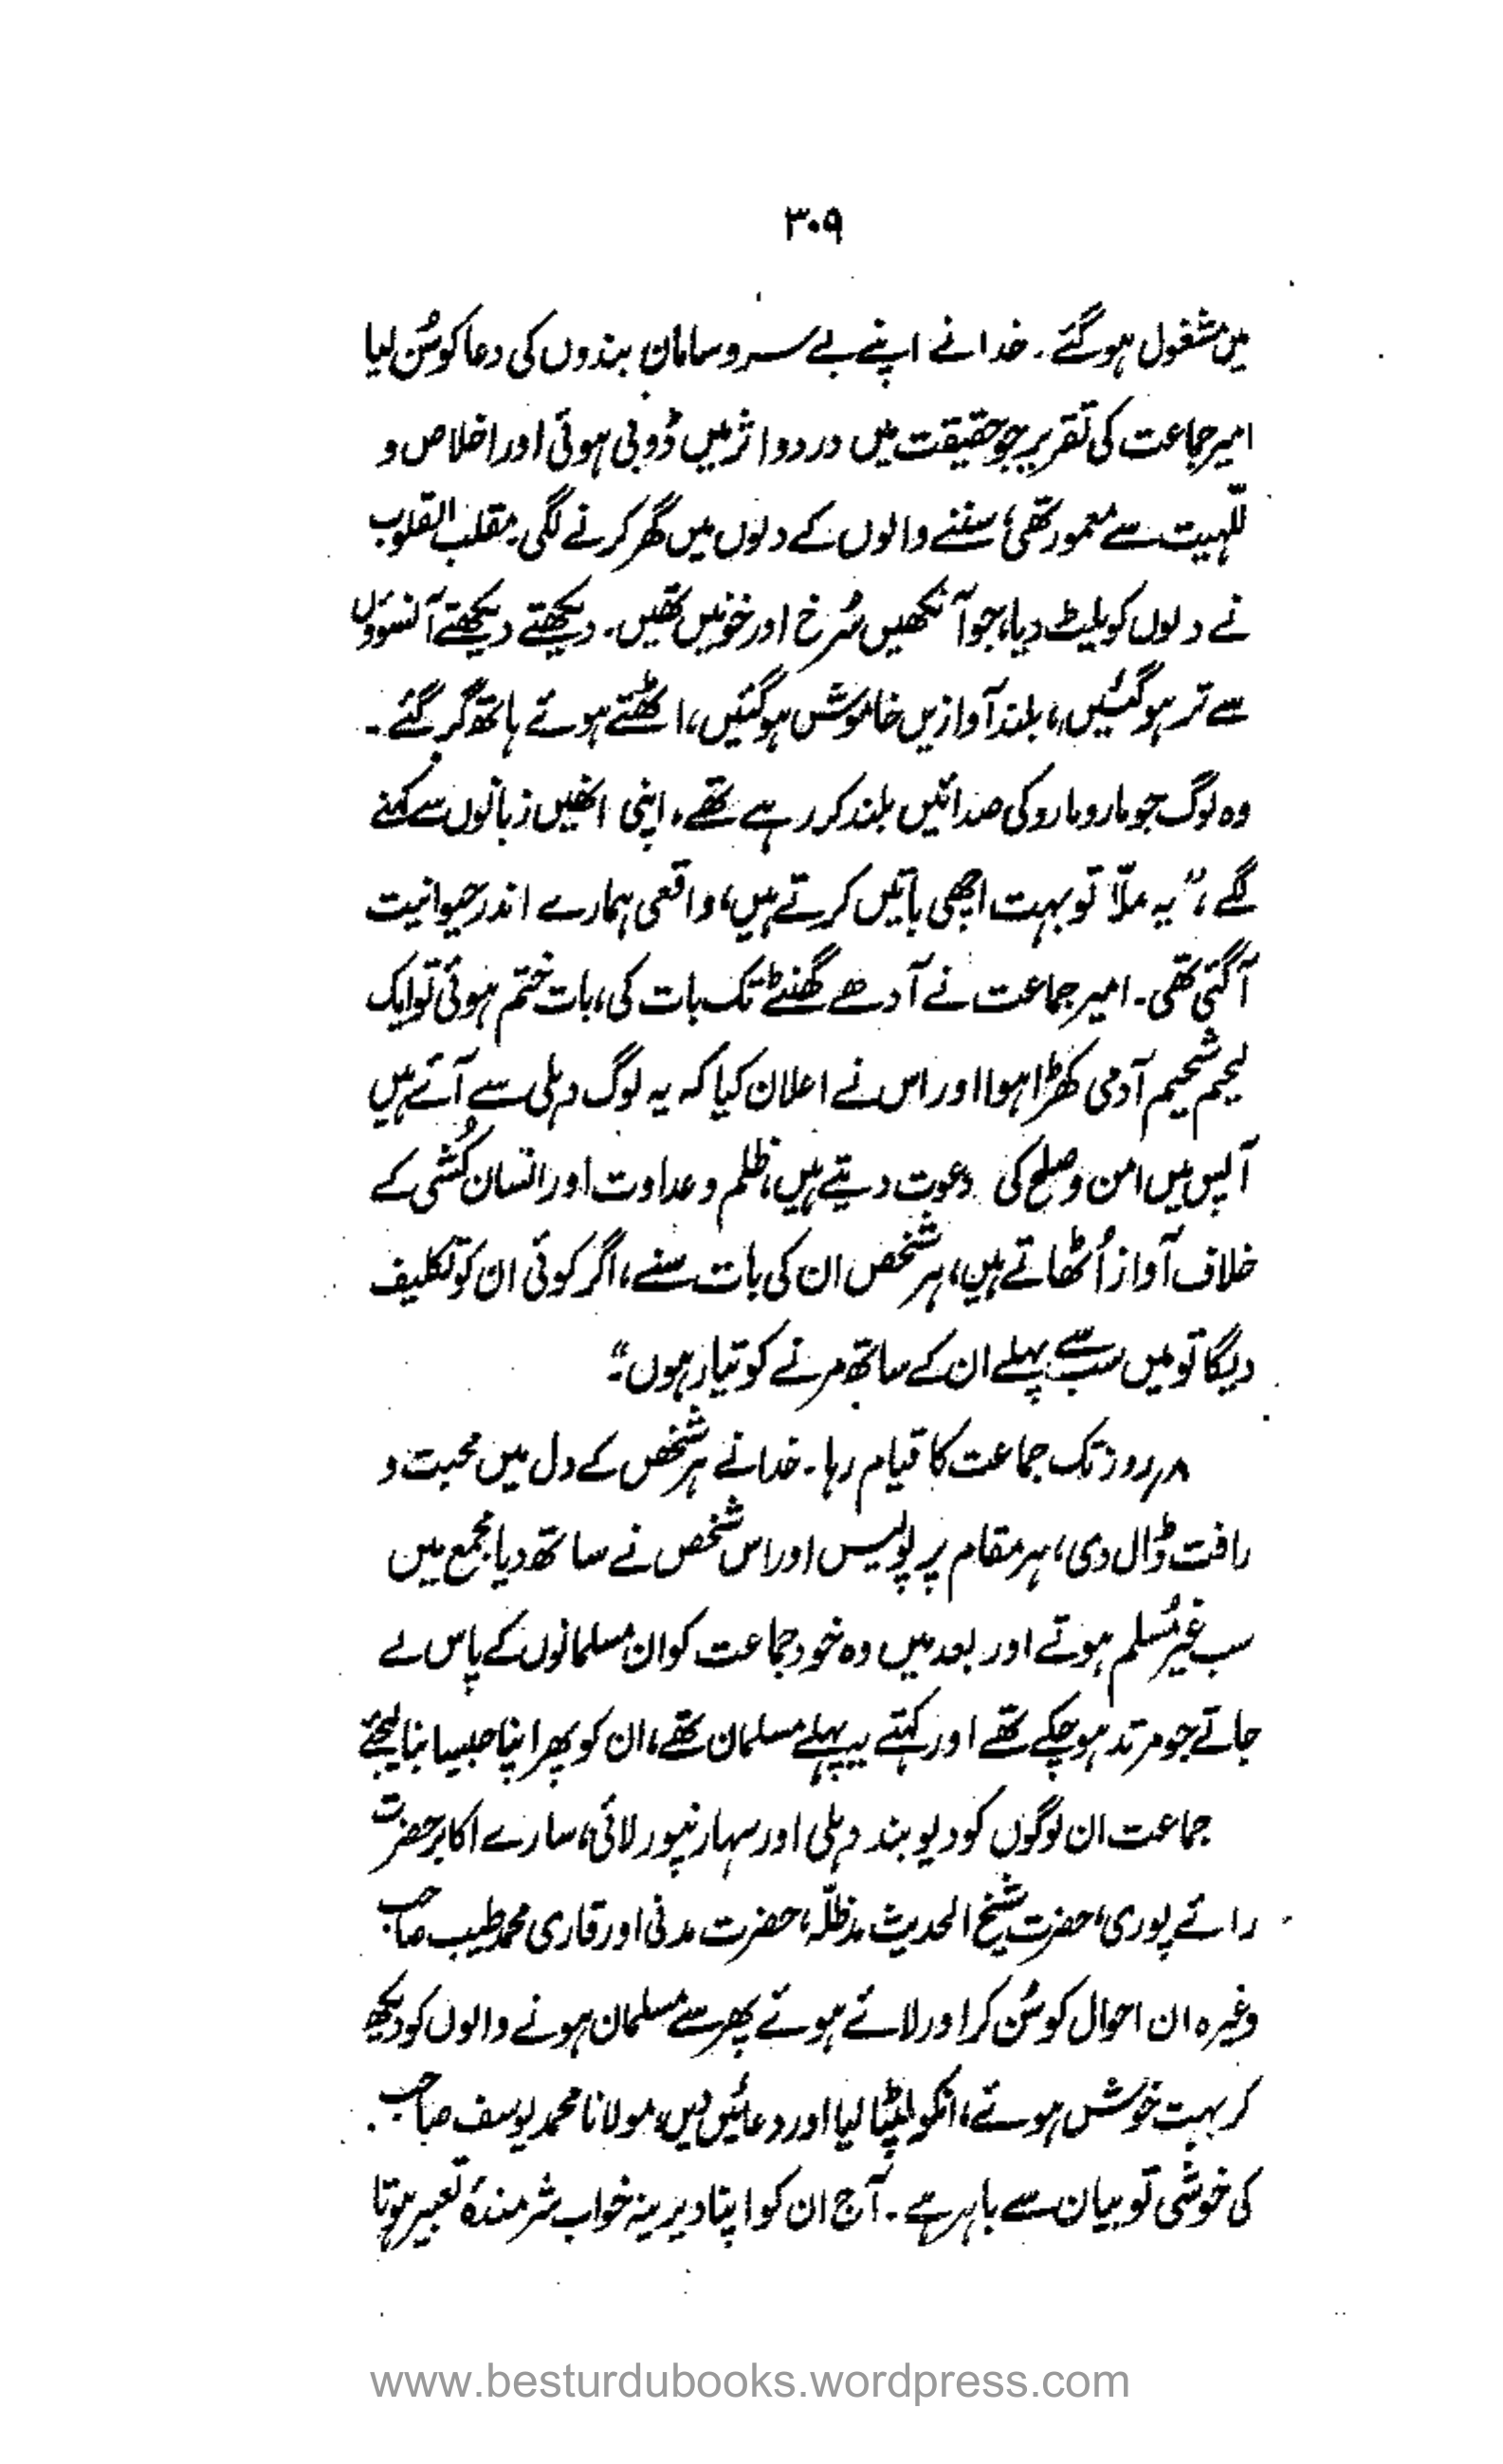 ۳۰۹
میں مشغول ہوگئے۔ خدا نے اپنے بے سروسامان بندوں کی دعا کو سُن لیا
امیر جماعت کی تقریر جو حقیقت میں درد و اثر میں ڈوبی ہوئی اور اخلاص و
للّٰہیت سے معمور تھی، سننے والوں کے دلوں میں گھر کرنے لگی۔ مقلب القلوب
نے دلوں کو پلیٹ دیا، جو آنکھیں سُرخ اور خونیں تھیں۔ دیکھتے دیکھتے آنسوؤں
سے تر ہوگئیں، بلند آوازیں خاموش ہوگئیں، اٹھتے ہوئے ہاتھ گر گئے۔
وہ لوگ جو مارو مارو کی صدائیں بلند کر رہے تھے، اپنی انھیں زبانوں سے کہنے
لگے، ”یہ ملّا تو بہت اچھی باتیں کرتے ہیں، واقعی ہمارے اندر حیوانیت
آگئی تھی۔ امیر جماعت نے آدھے گھنٹے تک بات کی، بات ختم ہوئی تو ایک
لحیم شحیم آدمی کھڑا ہوا اور اس نے اعلان کیا کہ یہ لوگ دہلی سے آئے ہیں
آپس میں امن و صلح کی دعوت دیتے ہیں، ظلم و عداوت اور انسان کُشی کے
خلاف آواز اُٹھاتے ہیں، ہر شخص ان کی بات سنے، اگر کوئی ان کو تکلیف
دیگا تو میں سب سے پہلے ان کے ساتھ مرنے کو تیار ہوں۔“
۸ر روز تک جماعت کا قیام رہا۔ خدا نے ہر شخص کے دل میں محبت و
رافت ڈال دی، ہر مقام پر پولیس اور اس شخص نے ساتھ دیا، مجمع میں
سب غیر مُسلم ہوتے اور بعد میں وہ خود جماعت کو ان مسلمانوں کے پاس لے
جاتے جو مرتد ہو چکے تھے اور کہتے یہ پہلے مسلمان تھے، ان کو پھر اپنا جیسا بنا لیجئے
جماعت ان لوگوں کو دیوبند دہلی اور سہارنپور لائی، سارے اکابر حضرت
رائے پوری، حضرت شیخ الحدیث مدظلہٗ، حضرت مدنی اور قاری محمد طیب صاحب
وغیرہ ان احوال کو سُن کر اور لائے ہوئے پھر سے مسلمان ہونے والوں کو دیکھ
کر بہت خوش ہوئے، انکو لپٹا لیا اور دعائیں دیں، مولانا محمد یوسف صاحب
کی خوشی تو بیان سے باہر ہے۔ آج ان کو اپنا دیرینہ خواب شرمندۂ تعبیر ہوتا
www.besturdubooks.wordpress.com